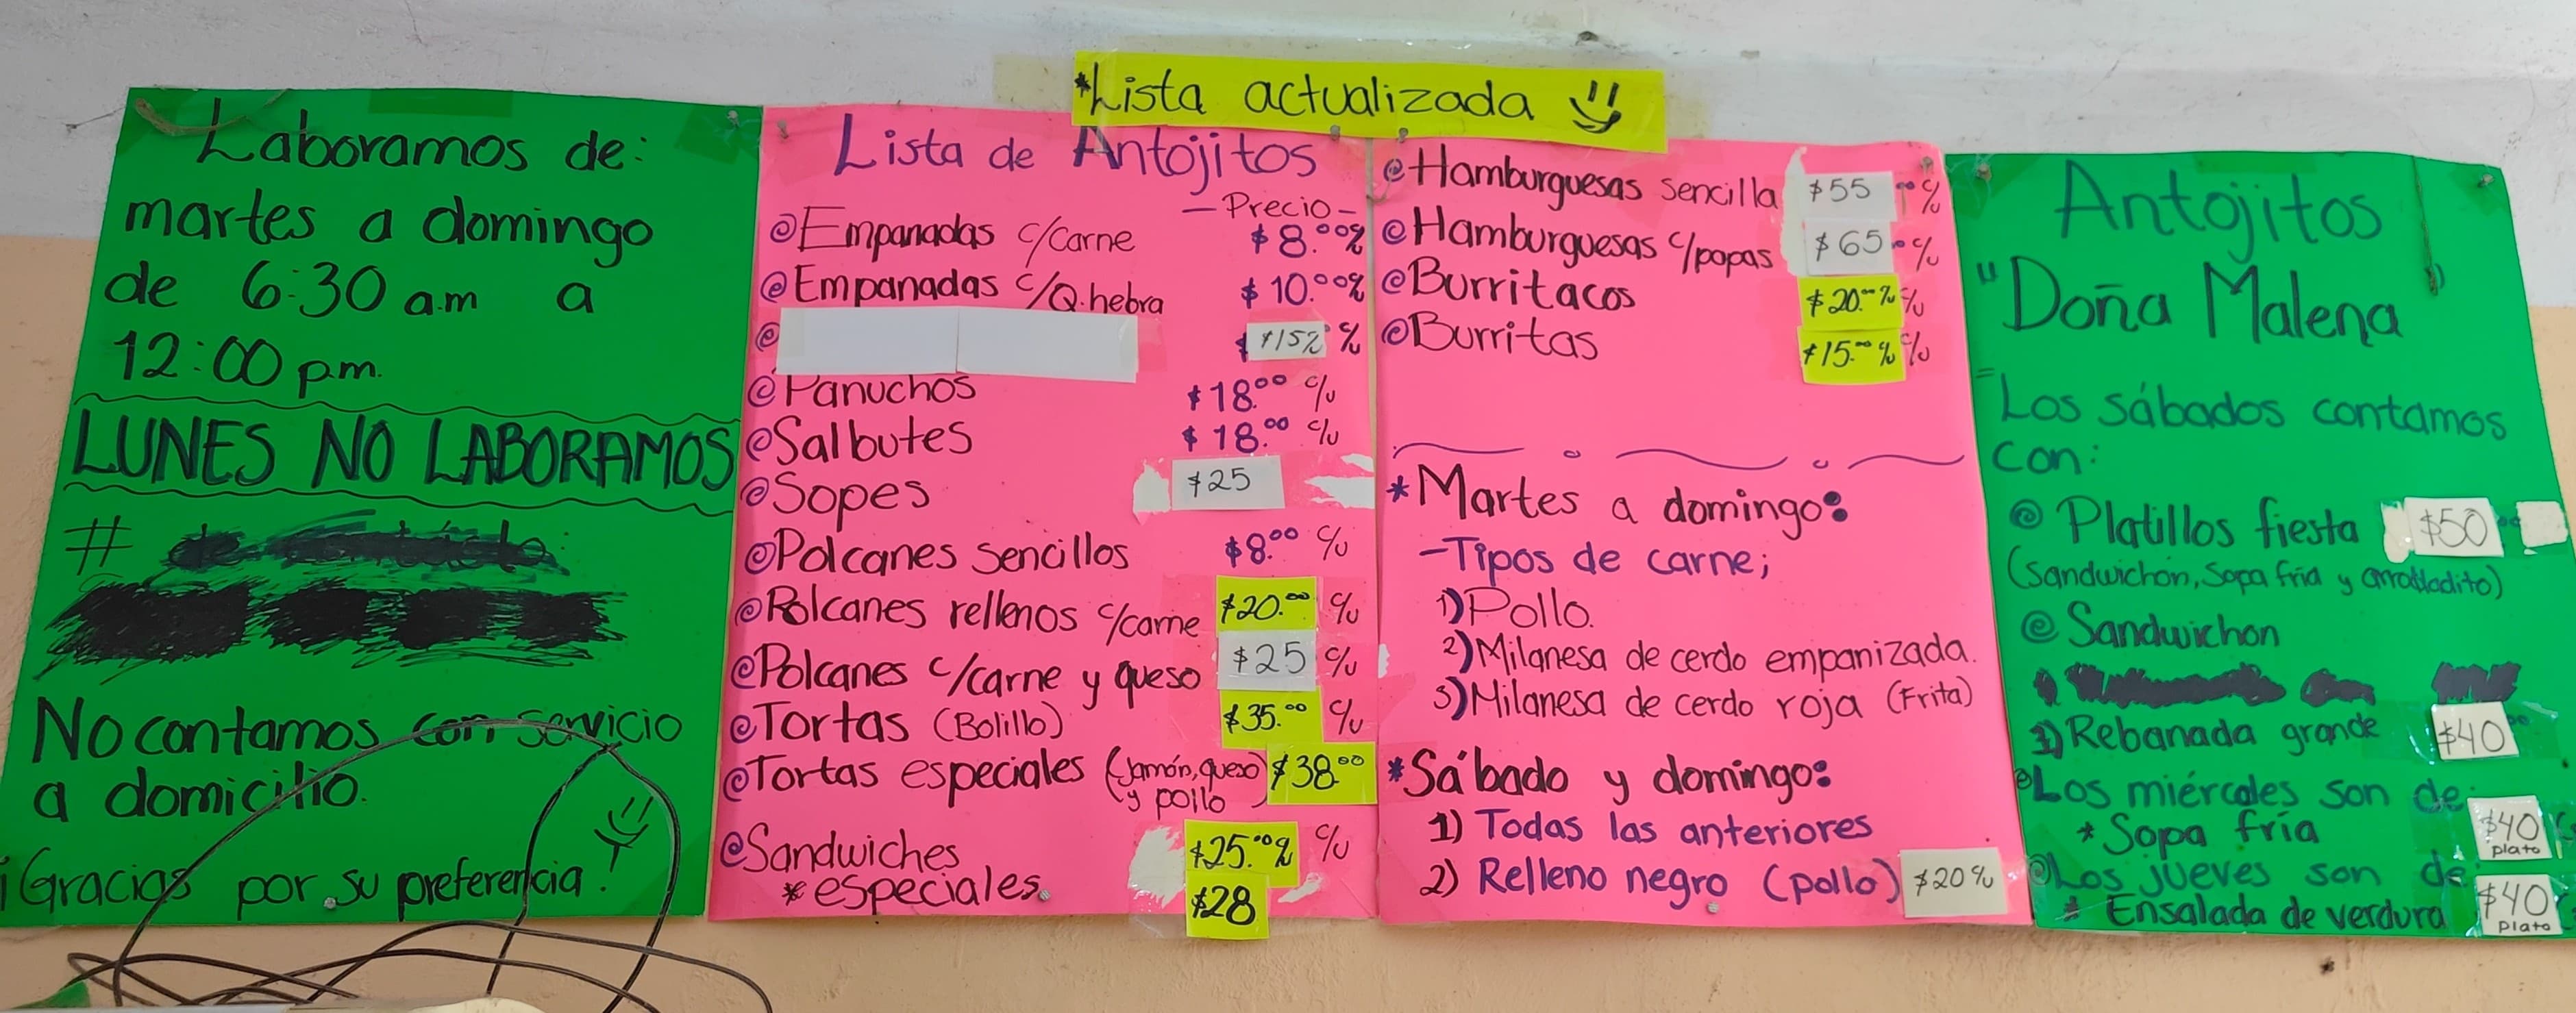 *Lista actualizada
Laboramos de:
martes a domingo
de 6:30 a.m a
12:00 p.m.
LUNES NO LABORAMOS
#
No contamos con servicio
a domicilio.
¡Gracias por su preferencia!
Lista de Antojitos
- Precio -
Empanadas c/carne $8.00 c/u
Empanadas c/Q.hebra $10.00 c/u
$15 c/u c/u
Panuchos $18.00 c/u
Salbutes $18.00 c/u
Sopes $25
Polcanes sencillos $8.00 c/u
Polcanes rellenos c/carne $20.00 c/u
Polcanes c/carne y queso $25 c/u
Tortas (Bolillo) $35.00 c/u
Tortas especiales (Jamón, queso $38.00
y pollo
Sandwiches $25.00 c/u c/u
* especiales. $28
Hamburguesas sencilla $55 00 c/u
Hamburguesas c/papas $65.00 c/u
Burritacos $20.00 c/u c/u
Burritas $15.00 c/u c/u
*Martes a domingo:
-Tipos de carne;
1) Pollo.
2) Milanesa de cerdo empanizada.
3) Milanesa de cerdo roja (Frita)
*Sábado y domingo:
1) Todas las anteriores
2) Relleno negro (pollo) $20 c/u
Antojitos
"Doña Malena"
Los sábados contamos
con:
Platillos fiesta $50
(Sandwichón, Sopa fría y arrolladito)
Sandwichon
1) Rebanada grande $40
Los miércoles son de:
* Sopa fría $40
plato
Los jueves son de
* Ensalada de verdura $40
plato